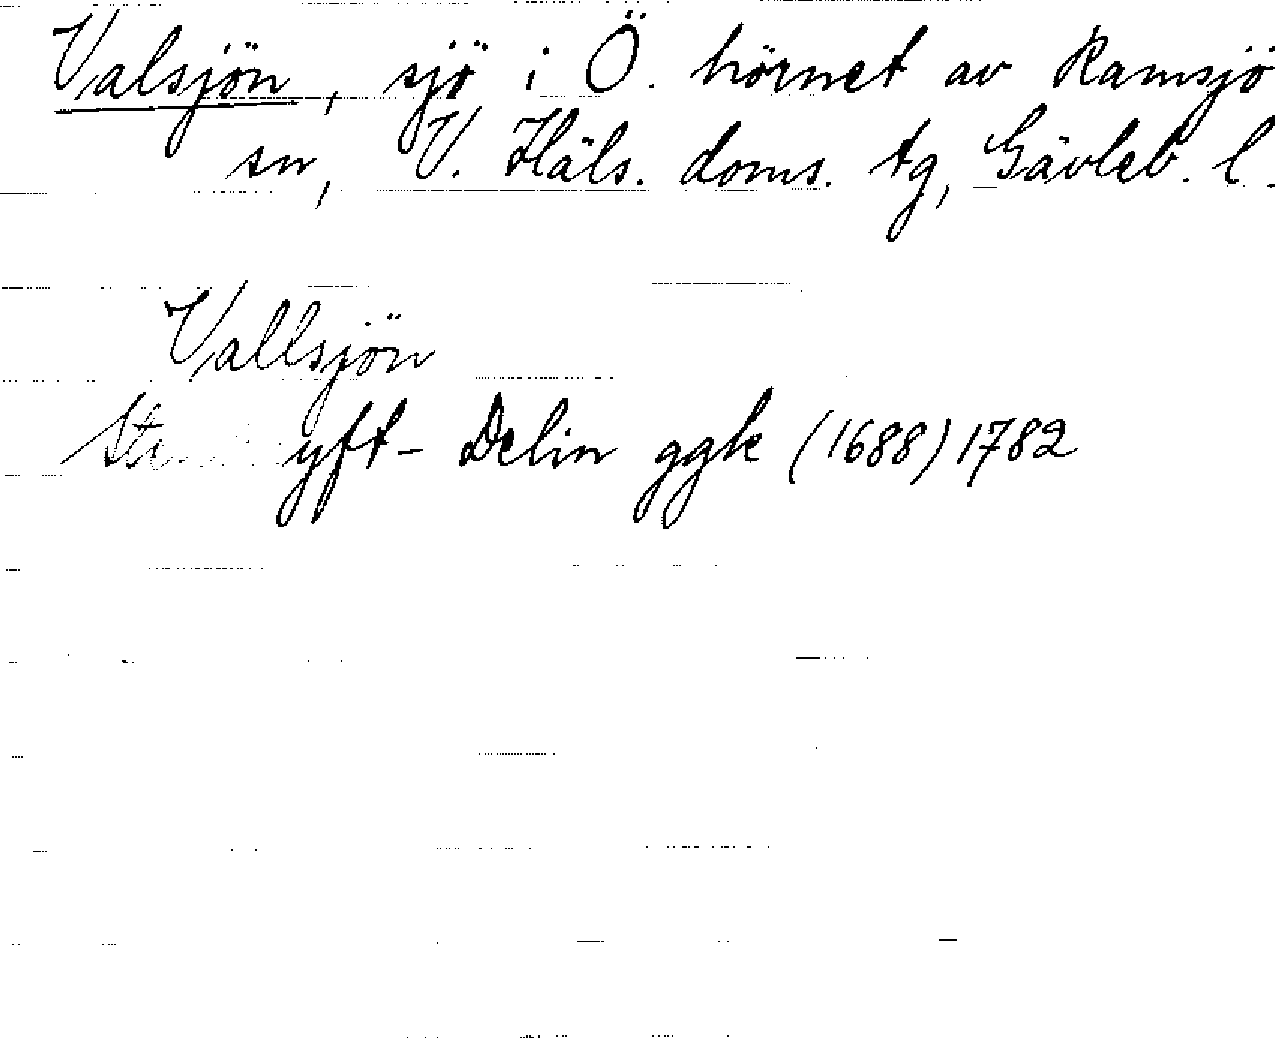 Valsjön, sjö i Ö. hörnet av Ramsjö
sn, V. Häls. doms. tg, Gävleb. l.
Vallsjön
yft- Delin ggk (1688) 1782